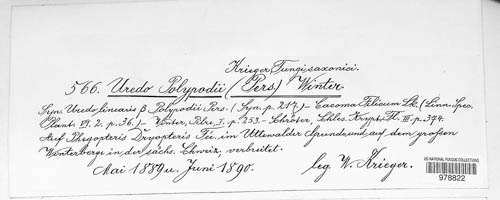 Krieger, Fungi saxonici.
566. Uredo Polypodii (Pers.) Winter.
Syn. Uredo linearis β Polypodii Pers. (Syn. p. 217.) – Caeoma Filicum Lk. (Linn. Spec.
Plant. VI. 2. p. 36.) – Winter, Pilze, I. p. 253. – Schröter, Schles. Krypt. Fl. III. p. 374.
Auf Phegopteris Dryopteris Fée. im Uttewalder Grunde und auf dem grossen
Winterberge in der sächs. Schweiz, verbreitet.
Mai 1889 u. Juni 1890. leg. W. Krieger.
US NATIONAL FUNGUS COLLECTIONS
978822